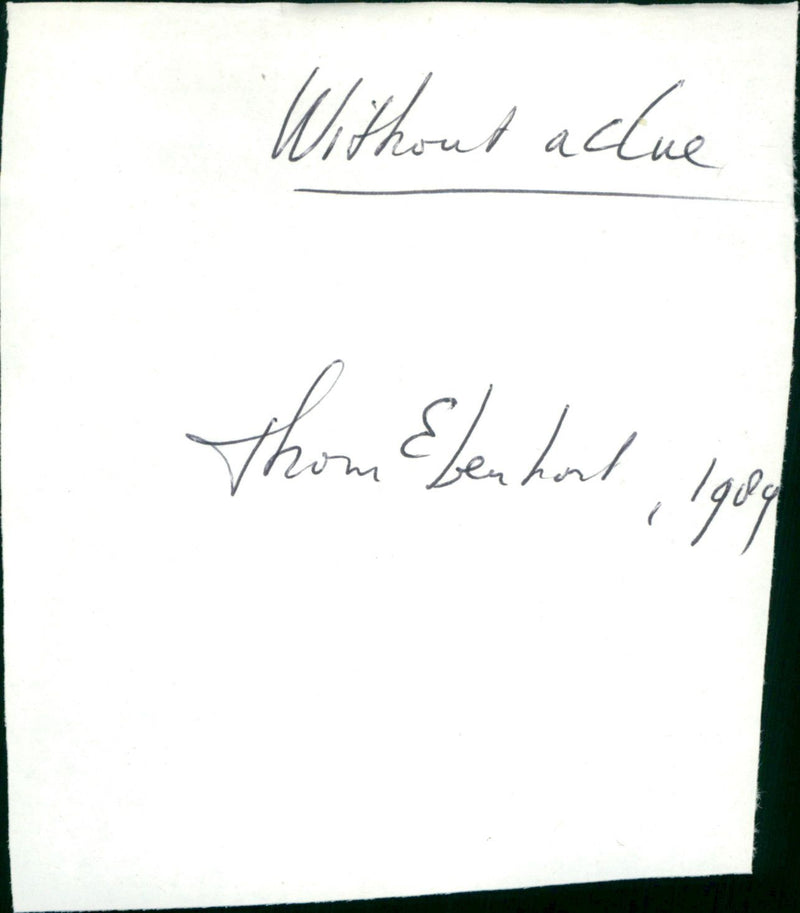 Without a clue
Thom Eberhart, 1989